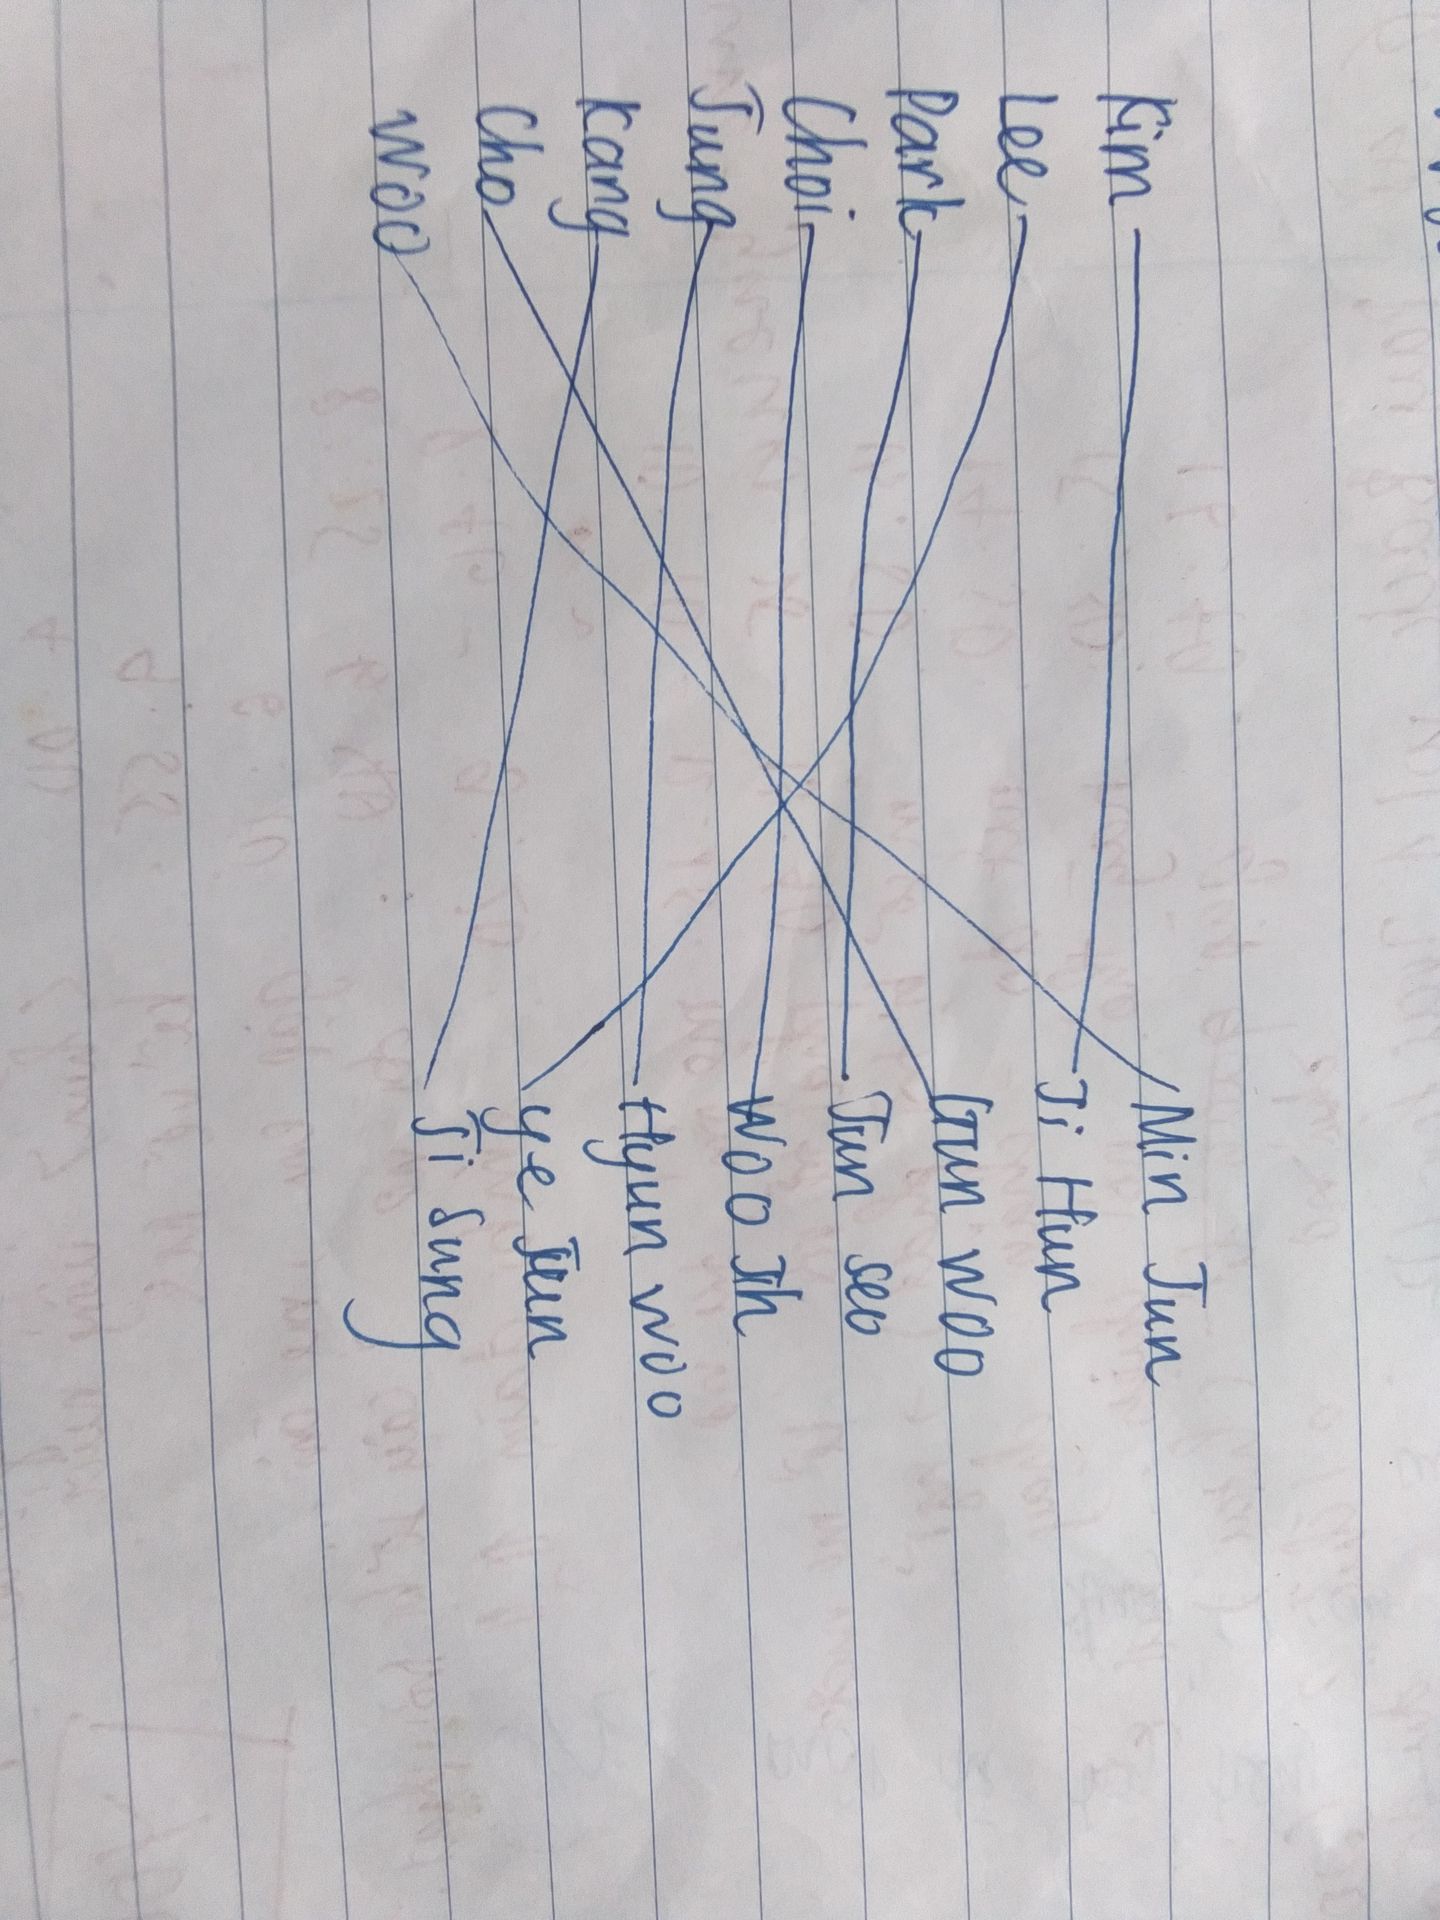 Kim Min Jun
Lee Ji Hun
Park Gun woo
Choi Jun seo
Jung Woo Jh
Kang Hyun woo
Cho ye Jun
Woo Ji Sung